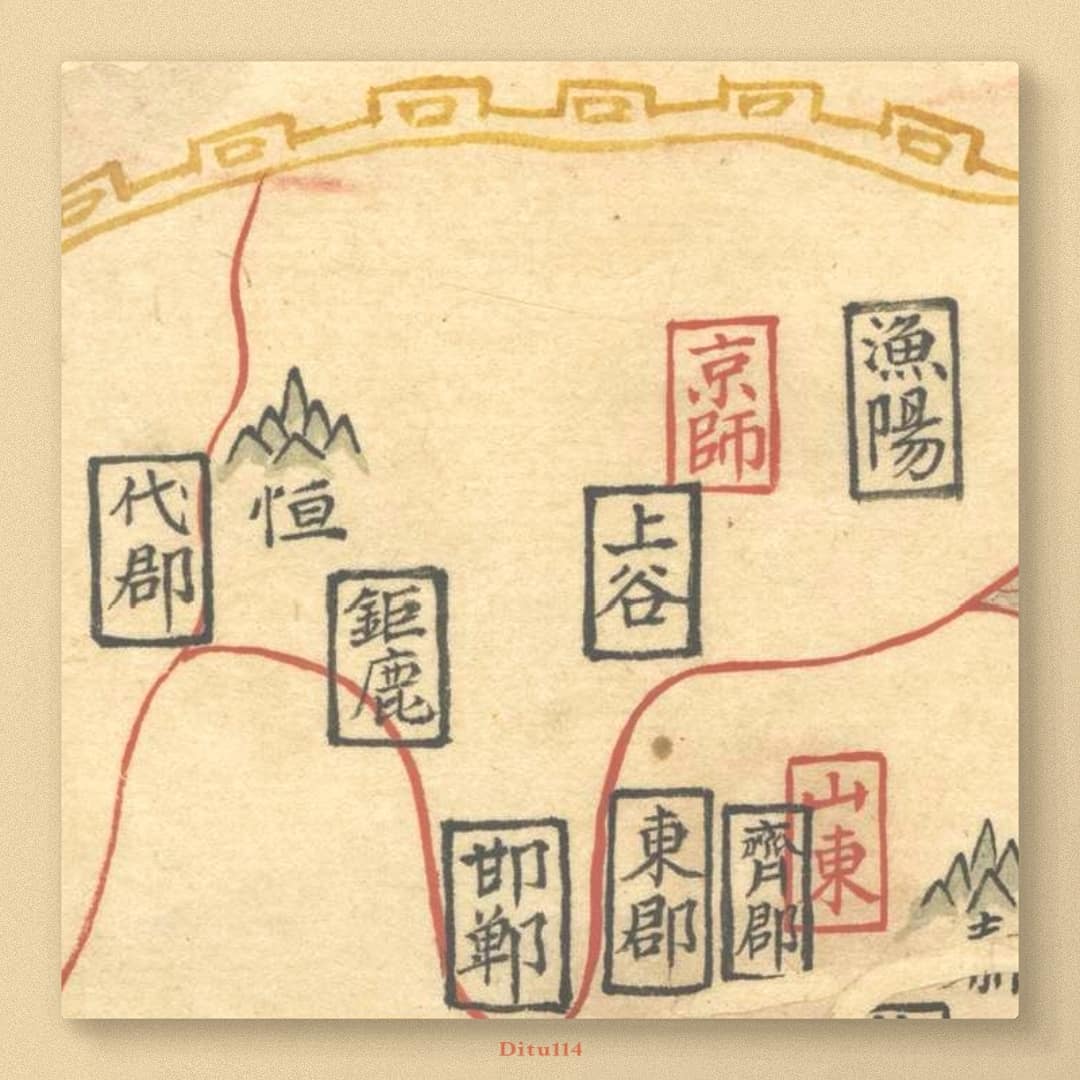 京師
漁陽
代郡
恒
上谷
鉅鹿
山東
邯鄲
東郡
齊郡
Ditu114